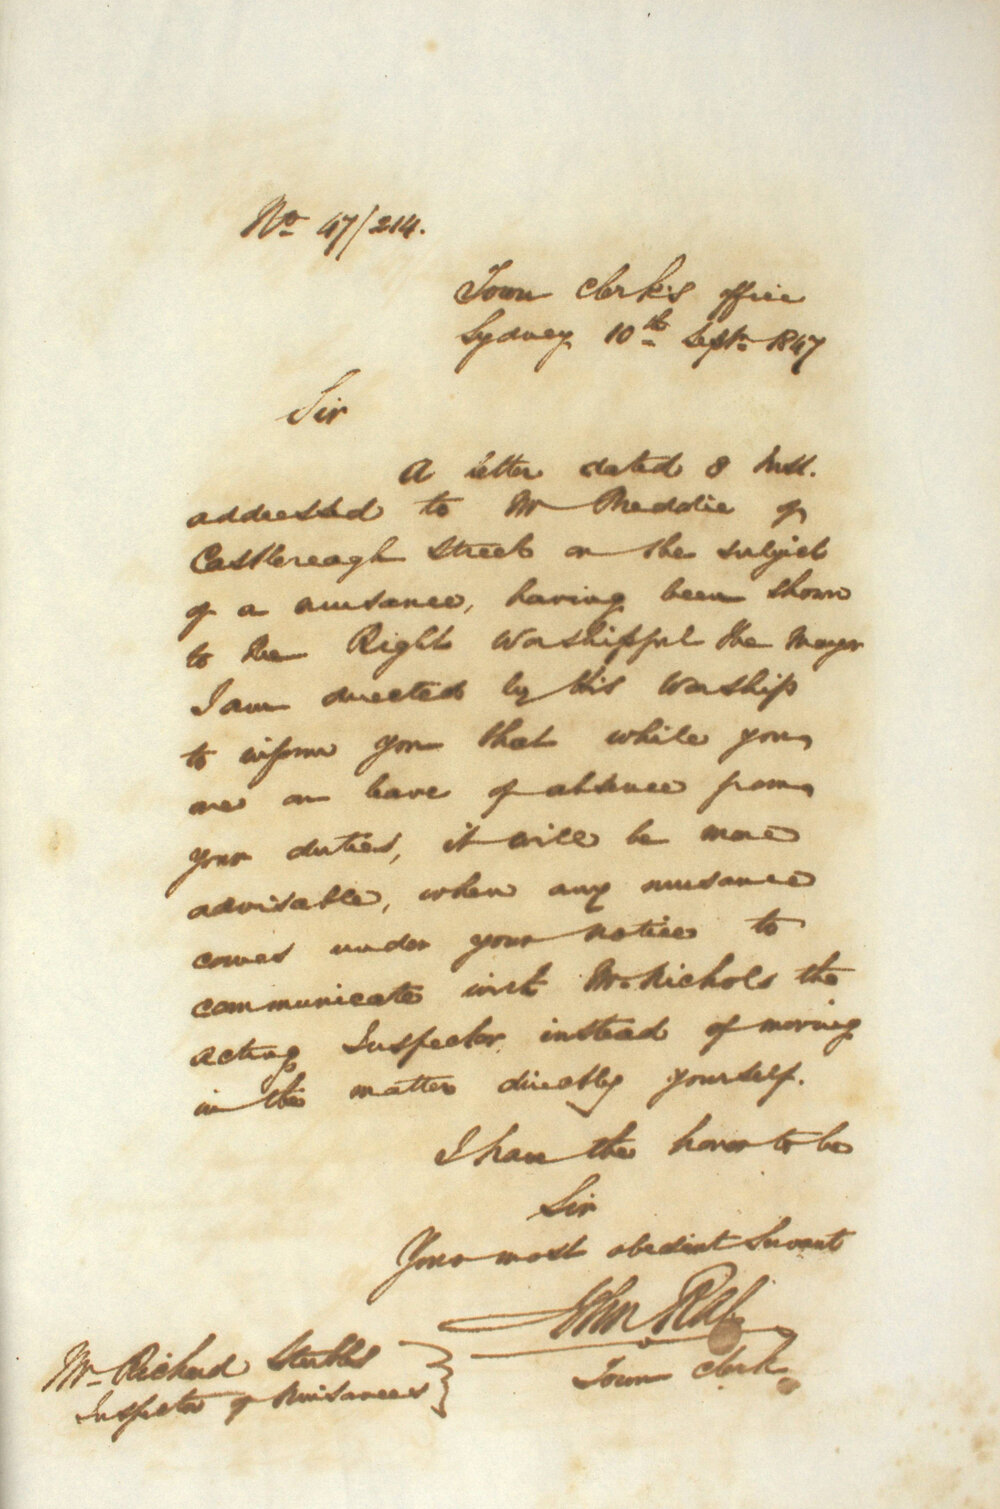 No 47/214.
Town Clerk's office
Sydney 10th Septr 1847
Sir
A letter dated 8 Inst.
addressed to Mr Meddie of
Castlereagh Street on the subject
of a nuisance, having been shown
to the Right Worshipful the Mayor
I am directed by His Worship
to inform you that while you
are on leave of absence from
your duties, it will be more
advisable, when any nuisance
comes under your notice to
communicate with Mr Nichols the
acting Inspector instead of moving
in the matter directly yourself.
I have the honor to be
Sir
Your most obedient Servant
John Rae
Town Clerk
Mr Richard Stubbs
Inspector of Nuisances